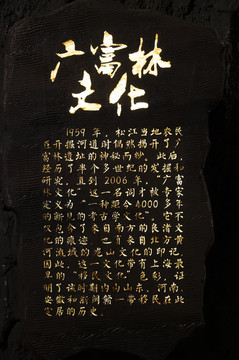 广富林
文化
1959年，松江当地农民
在开掘河道时偶然揭开了广
富林遗址的神秘面纱。此后，
经历了半个多世纪的发掘和
研究，直到2006年，“广富
林文化”这一名词才被专家
定义为“一种距今4000多年
的新见的考古学文化”。它不
仅包含了来自南方的良渚文
化的痕迹，也有来自北方黄
河流域的龙山文化的印记。
因此，这一文化带有上海最
早的“移民文化”色彩，证
明了该时期内由山东、河南、
安徽和
一带移民在此
定居的历史。